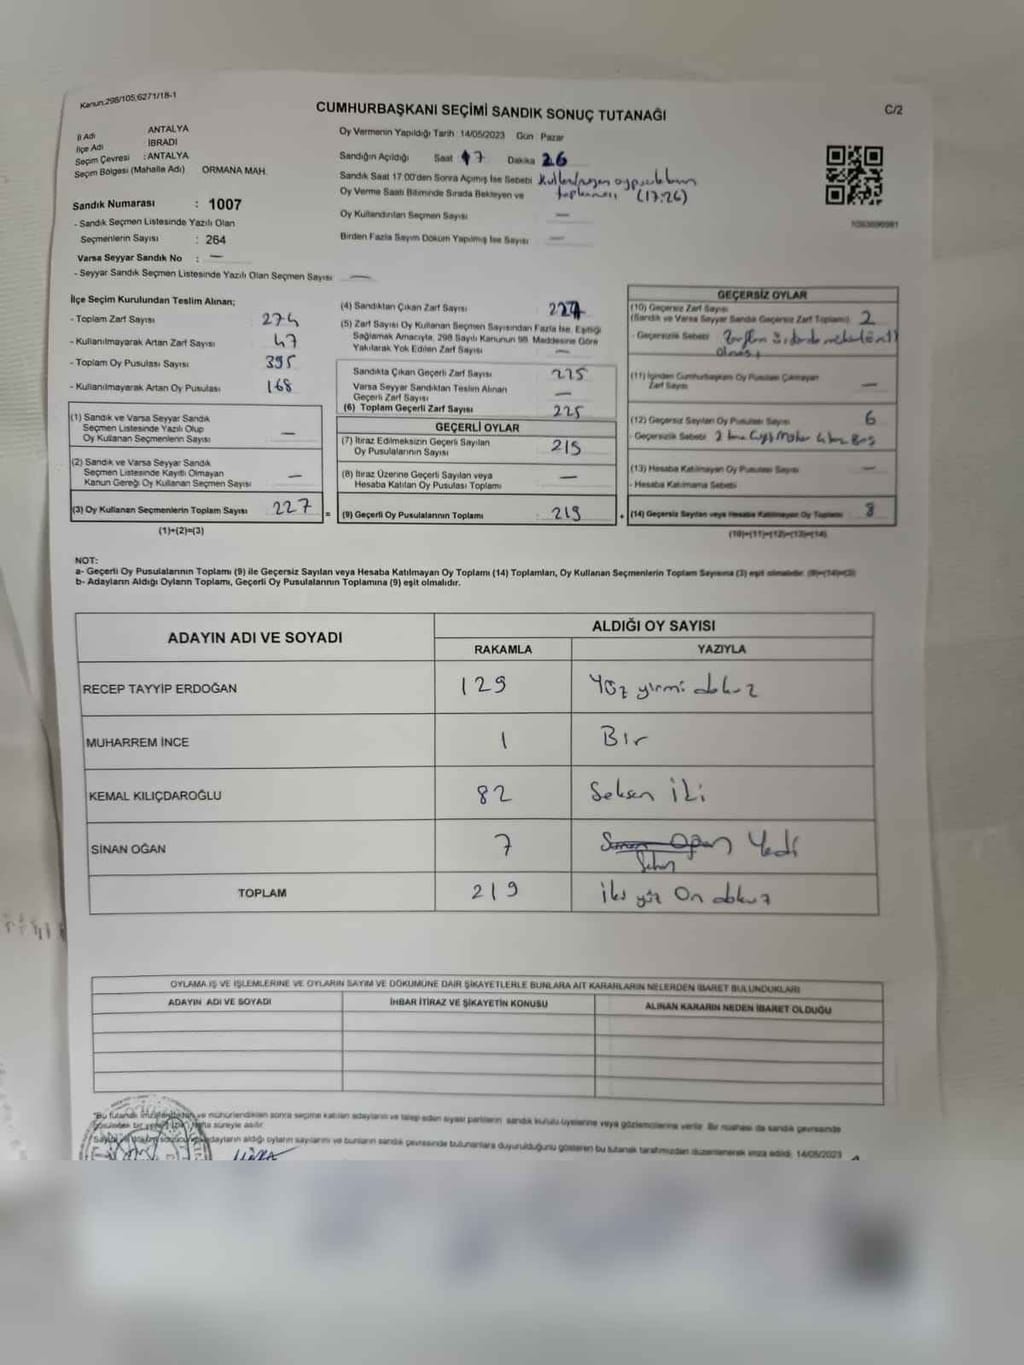 Kanun.298/105;6271/18-1
C/2
CUMHURBAŞKANI SEÇİMİ SANDIK SONUÇ TUTANAĞI
İl Adı ANTALYA
İlçe Adı İBRADI
Seçim Çevresi :ANTALYA
Seçim Bölgesi (Mahalle Adı) ORMANA MAH.
Sandık Numarası : 1007
- Sandık Seçmen Listesinde Yazılı Olan
Seçmenlerin Sayısı : 264
Varsa Seyyar Sandık No : —
- Seyyar Sandık Seçmen Listesinde Yazılı Olan Seçmen Sayısı —
Oy Vermenin Yapıldığı Tarih :14/05/2023 Gün Pazar
Sandığın Açıldığı Saat 17 Dakika 26
Sandık Saat 17:00'den Sonra Açmış İse Sebebi
Oy Verme Saati Bitiminde Sırada Bekleyen ve (17:26)
Oy Kullandırılan Seçmen Sayısı —
Birden Fazla Sayım Döküm Yapılmış İse Sayısı —
İlçe Seçim Kurulundan Teslim Alınan;
- Toplam Zarf Sayısı 274
- Kullanılmayarak Artan Zarf Sayısı 47
- Toplam Oy Pusulası Sayısı 395
- Kullanılmayarak Artan Oy Pusulası 168
(1) Sandık ve Varsa Seyyar Sandık
Seçmen Listesinde Yazılı Olup
Oy Kullanan Seçmenlerin Sayısı —
(2) Sandık ve Varsa Seyyar Sandık
Seçmen Listesinde Kayıtlı Olmayan
Kanun Gereği Oy Kullanan Seçmen Sayısı —
(3) Oy Kullanan Seçmenlerin Toplam Sayısı 227
(1)+(2)=(3)
(4) Sandıktan Çıkan Zarf Sayısı 227
(5) Zarf Sayısı Oy Kullanan Seçmen Sayısından Fazla İse, Eşitliği
Sağlamak Amacıyla, 298 Sayılı Kanunun 98. Maddesine Göre
Yakılarak Yok Edilen Zarf Sayısı —
Sandıkta Çıkan Geçerli Zarf Sayısı 225
Varsa Seyyar Sandıktan Teslim Alınan
Geçerli Zarf Sayısı —
(6) Toplam Geçerli Zarf Sayısı 225
GEÇERLİ OYLAR
(7) İtiraz Edilmeksizin Geçerli Sayılan
Oy Pusulalarının Sayısı 219
(8) İtiraz Üzerine Geçerli Sayılan veya
Hesaba Katılan Oy Pusulası Toplamı —
= (9) Geçerli Oy Pusulalarının Toplamı 219
GEÇERSİZ OYLAR
(10) Geçersiz Zarf Sayısı
(Sandık ve Varsa Seyyar Sandık Geçersiz Zarf Toplamı) 2
- Geçersizlik Sebebi
(11) İçinden Cumhurbaşkanı Oy Pusulası Çıkmayan
Zarf Sayısı —
(12) Geçersiz Sayılan Oy Pusulası Sayısı 6
- Geçersizlik Sebebi 2
(13) Hesaba Katılmayan Oy Pusulası Sayısı —
- Hesaba Katılmama Sebebi
+ (14) Geçersiz Sayılan veya Hesaba Katılmayan Oy Toplamı 8
(10)+(11)+(12)+(13)=(14)
NOT:
a- Geçerli Oy Pusulalarının Toplamı (9) ile Geçersiz Sayılan veya Hesaba Katılmayan Oy Toplamı (14) Toplamları, Oy Kullanan Seçmenlerin Toplam Sayısına (3) eşit olmalıdır. (9)+(14)=(3)
b- Adayların Aldığı Oyların Toplamı, Geçerli Oy Pusulalarının Toplamına (9) eşit olmalıdır.
ADAYIN ADI VE SOYADI
ALDIĞI OY SAYISI
RAKAMLA YAZIYLA
RECEP TAYYİP ERDOĞAN 129 Yüz yirmi dokuz
MUHARREM İNCE 1 Bir
KEMAL KILIÇDAROĞLU 82 Seksen iki
SİNAN OĞAN 7 Yedi
TOPLAM 219 iki yüz On dokuz
OYLAMA İŞ VE İŞLEMLERİNE VE OYLARIN SAYIM VE DÖKÜMÜNE DAİR ŞİKAYETLERLE BUNLARA AİT KARARLARIN NELERDEN İBARET BULUNDUKLARI
ADAYIN ADI VE SOYADI İHBAR İTİRAZ VE ŞİKAYETİN KONUSU ALINAN KARARIN NEDEN İBARET OLDUĞU
"Bu tutanak ve mühürlendikten sonra seçime katılan adayların ve talep eden siyasi partilerin sandık kurulu üyelerine veya gözlemcilerine verilir. Bir nüshası da sandık çevresinde
süreyle asılır.
adayların aldığı oyların sayılarını ve bunların sandık çevresinde bulunanlara duyurulduğunu gösteren bu tutanak tarafımızdan düzenlenerek imza edildi. 14/05/2023